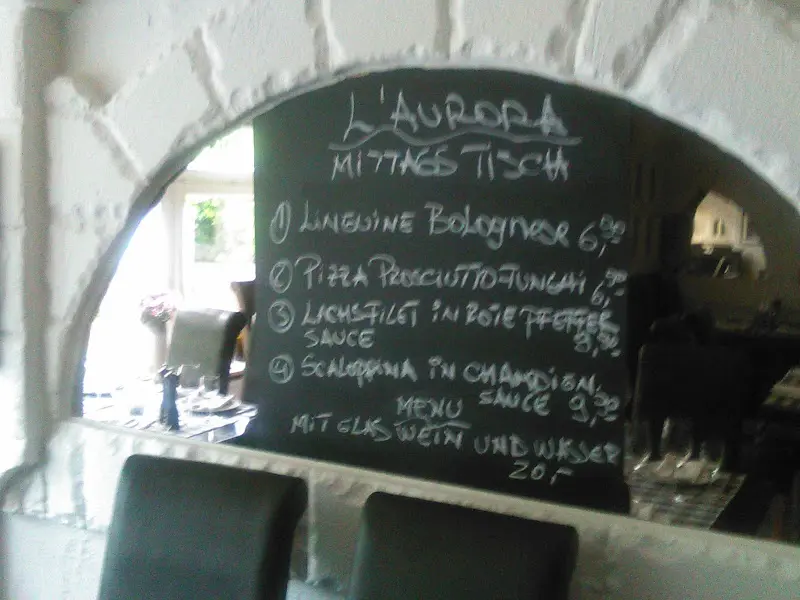 L'AURORA
MITTAGSTISCH
1 LINGUINE BOLOGNESE 6,90
2 PIZZA PROSCIUTTO-FUNGHI 6,90
3 LACHSFILET IN ROTE PFEFFER
SAUCE 9,90
4 SCALOPPINA IN CHAMPIGN.
SAUCE 9,90
MENU
MIT GLAS WEIN UND WASSER
20,-